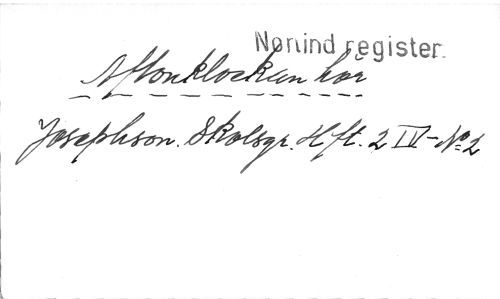 Norlind register.
Aftonklockan hör
Josephson. Skolsgr. Hft. 2 IV - No 2